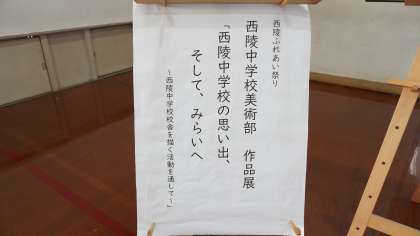 西陵ふれあい祭り
西陵中学校美術部　作品展
「西陵中学校の思い出、
そして、みらいへ
～西陵中学校校舎を描く活動を通して～」